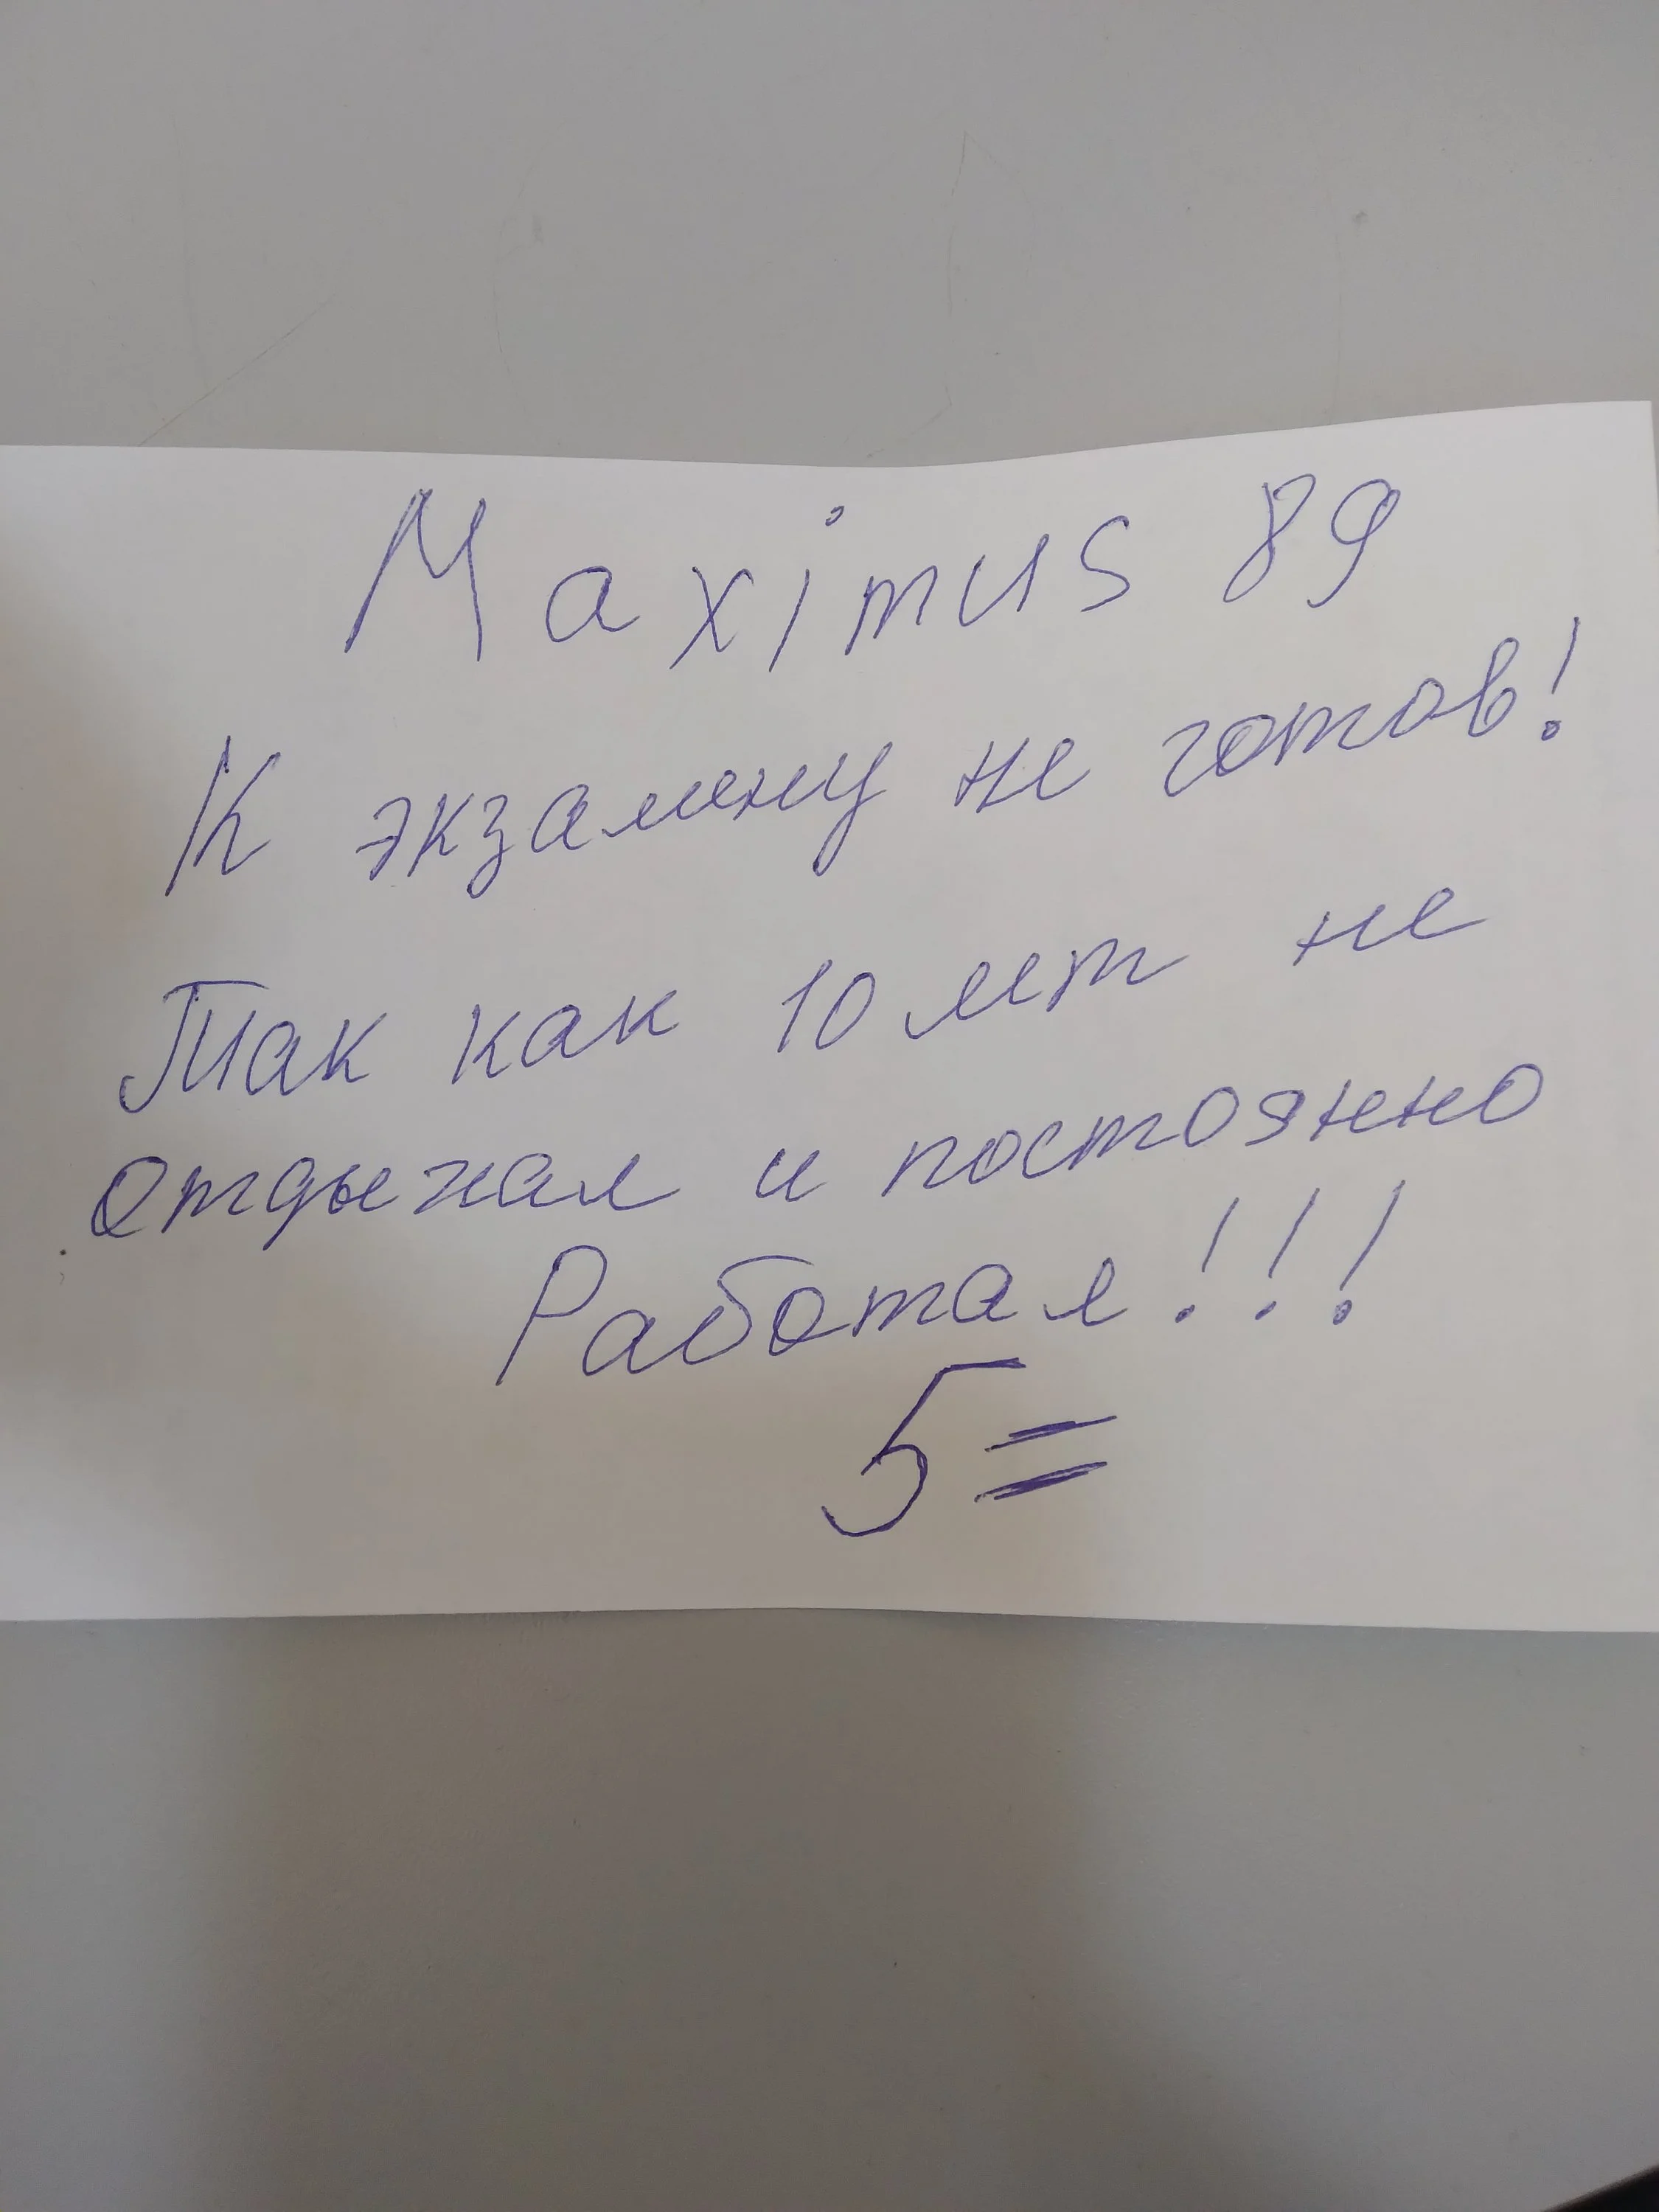 Maximus 89
К экзамену не готов!
Так как 10 лет не
отдыхал и постоянно
Работал!!!
5=